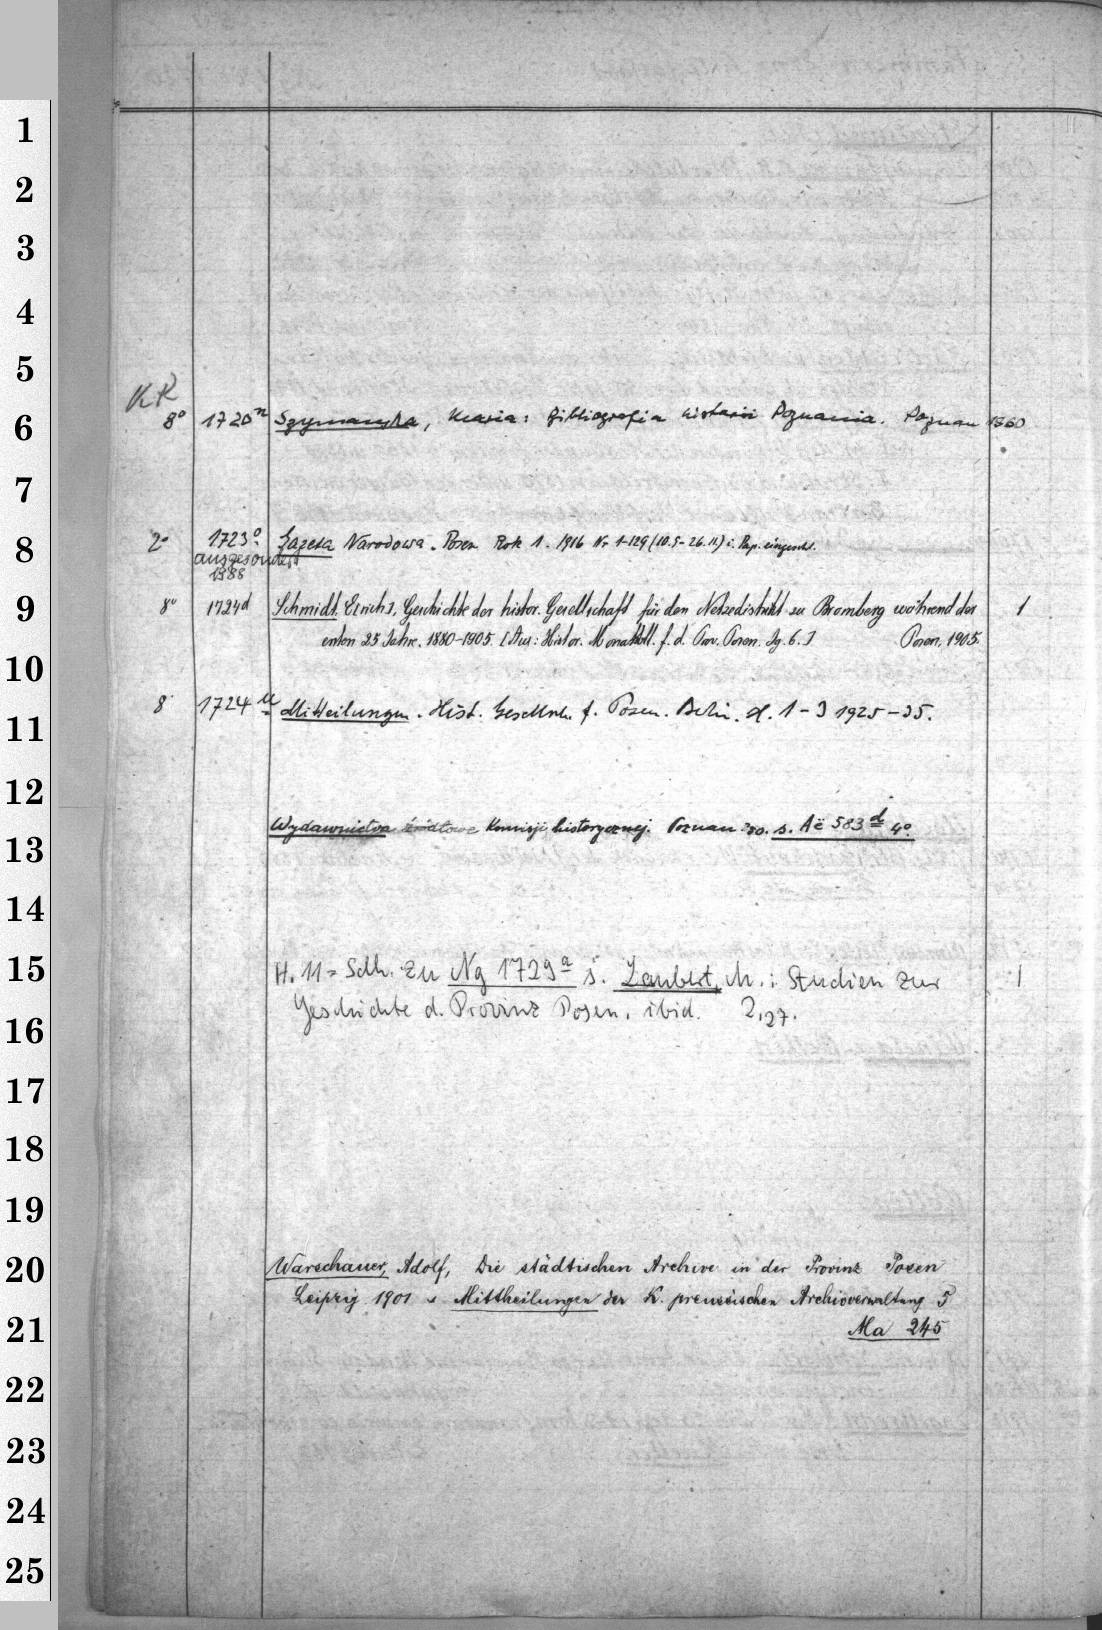 1
2
3
4
5
KR
6
8° 1720n Szymańska, Maria: Bibliografia historii Poznania. Poznań 1960
7
8
2° 1723o Gazeta Narodowa. Posen Rok 1. 1916 Nr 1-129 (10.5-26.11) i. Pap. eingeschl.
ausgesondert
1988
9
8° 1724d Schmidt, Erich, Geschichte der histor. Gesellschaft für den Netzedistrikt zu Bromberg während der 1
ersten 25 Jahre. 1880-1905. [Aus: Histor. Monatsbll. f. d. Prov. Posen. Jg. 6.] Posen, 1905.
10
8° 1724 Mitteilungen. Hist. Gesellsch. f. Posen. Berlin. H. 1-3 1925-35.
11
12
Wydawnictwa źródłowe Komisji historycznej. Poznań s. Aë 583d 4°.
13
14
15
H. 11 = Sdh. zu Ng 1729a s. Laubert, M.: Studien zur 1
Geschichte d. Provinz Posen. ibid. 2,27.
16
17
18
19
20
Warschauer, Adolf, Die städtischen Archive in der Provinz Posen
Leipzig 1901 s Mittheilungen der K. preussischen Archivverwaltung 5
21
Ma 245
22
23
24
25